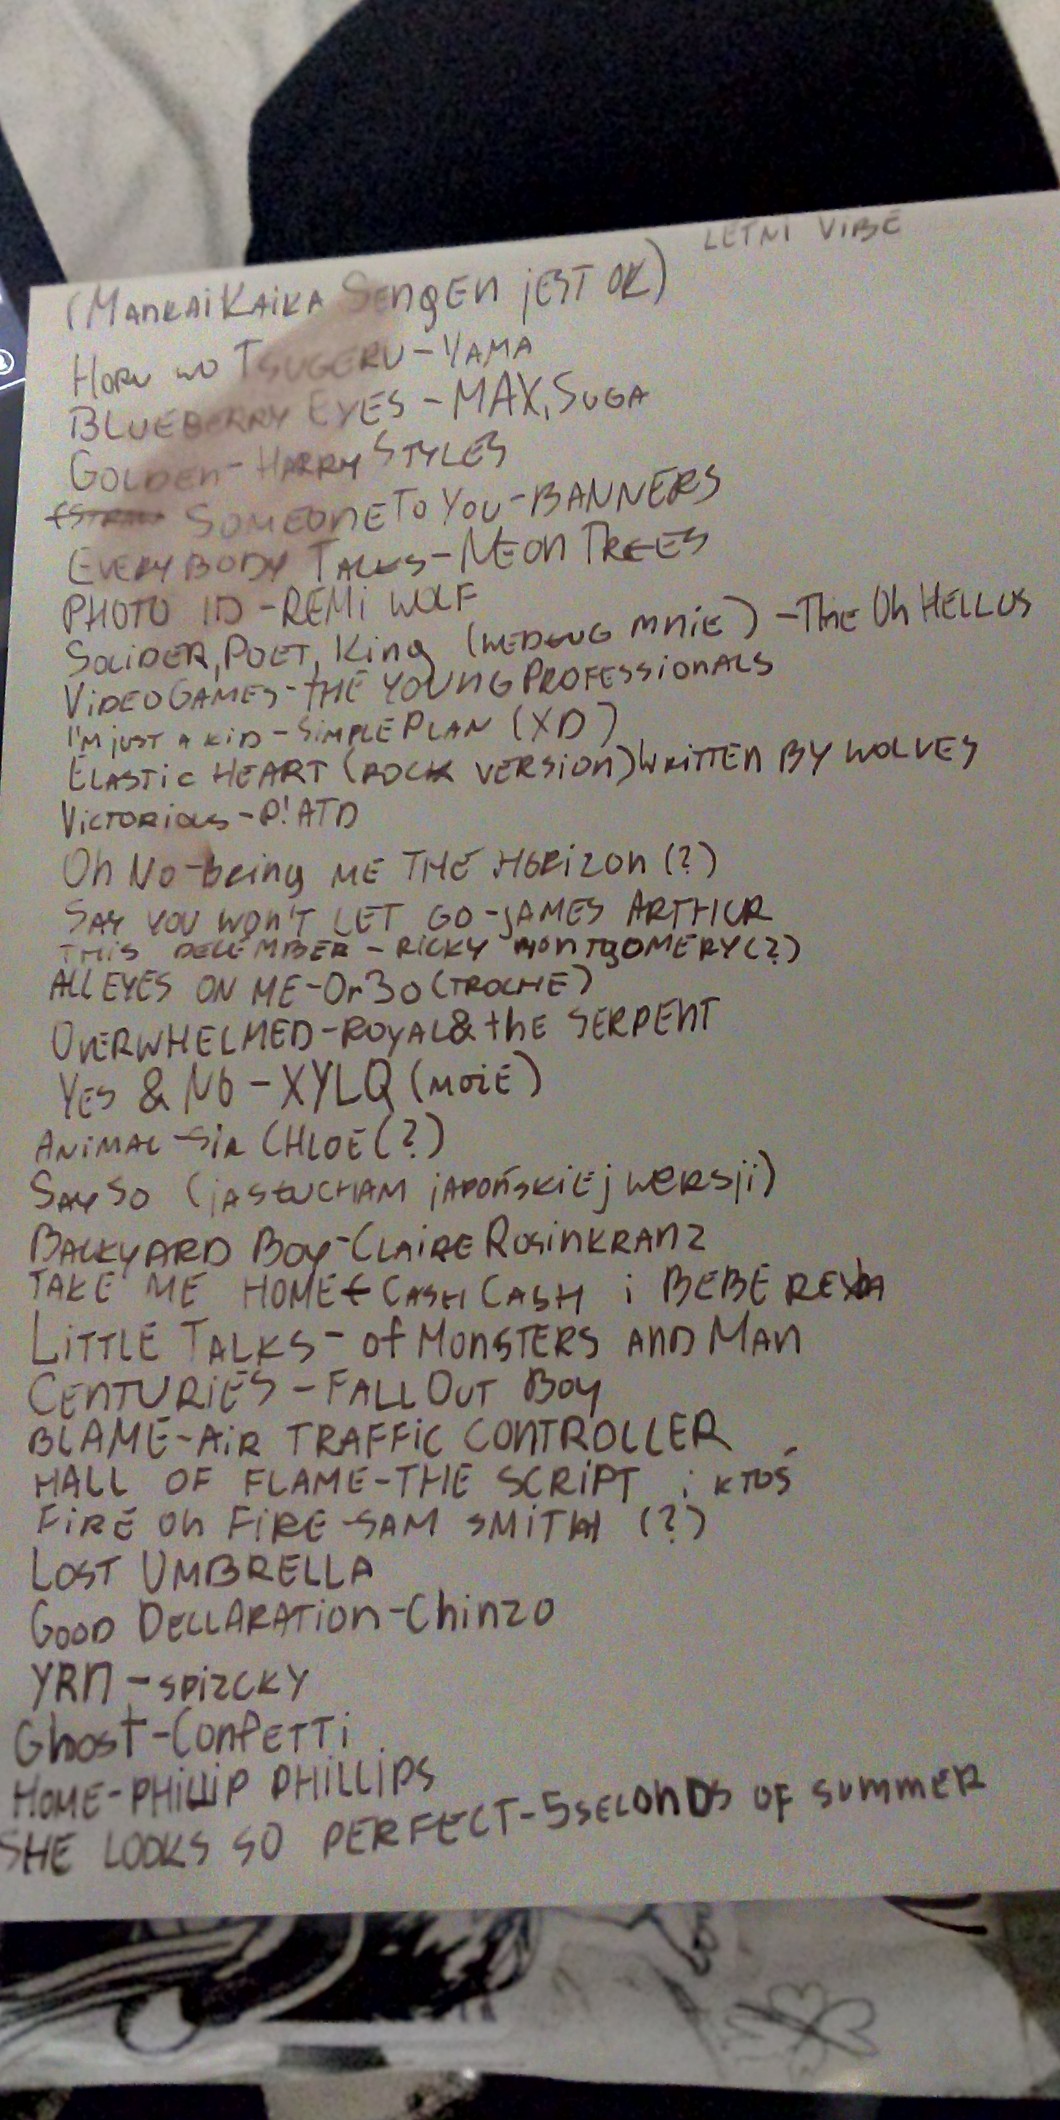 LETNI VIBE
(MANKAI KAIKA SENGEN jEST OK)
HORU WO TSUGERU - YAMA
BLUEBERRY EYES - MAX, SUGA
GOLDEN - HARRY STYLES
SOMEONE TO YOU - BANNERS
EVERYBODY TALKS - NEON TREES
PHOTO ID - REMi WOLF
SOLiDER, POET, King (WEDŁUG MNiE) - THE Oh HELLOS
ViDEO GAMES - tHE YOUNG PROFESSiONALS
I'M jUST A KiD - SiMPLE PLAN (XD)
ELASTiC HEART (ROCK VERSiON) WRiTTEN BY WOLVES
ViCTORiOUS - P!ATD
Oh No - being ME THE HORiZON (?)
SAY YOU WON'T LET GO - jAMES ARTHUR
THiS DECEMBER - RiCKY MONTGOMERY (?)
ALL EYES ON ME - Or3o (TROCHE)
OVERWHELMED - ROYAL & thE SERPENT
YES & NO - XYLØ (MOżE)
ANiMAL - SiR CHLOE (?)
SAY SO (jA SŁUCHAM jAPOńSKiEj WERSji)
BACKYARD BOY - CLAiRE ROSiNKRANZ
TAKE ME HOME - CASH CASH i BEBE REXHA
LiTTLE TALKS - Of MONSTERS AND MAN
CENTURiES - FALL OUT BOY
BLAME - AiR TRAFFiC CONTROLLER
HALL OF FLAME - THE SCRiPT i KTOŚ
FiRE On FiRE - SAM SMiTH (?)
LOST UMBRELLA
GOOD DECLARATiON - Chinzo
YRN - SPiZCKY
Ghost - CONFETTi
HOME - PHILLiP PHiLLiPS
SHE LOOKS SO PERFECT - 5 SECONDS OF SUMMER